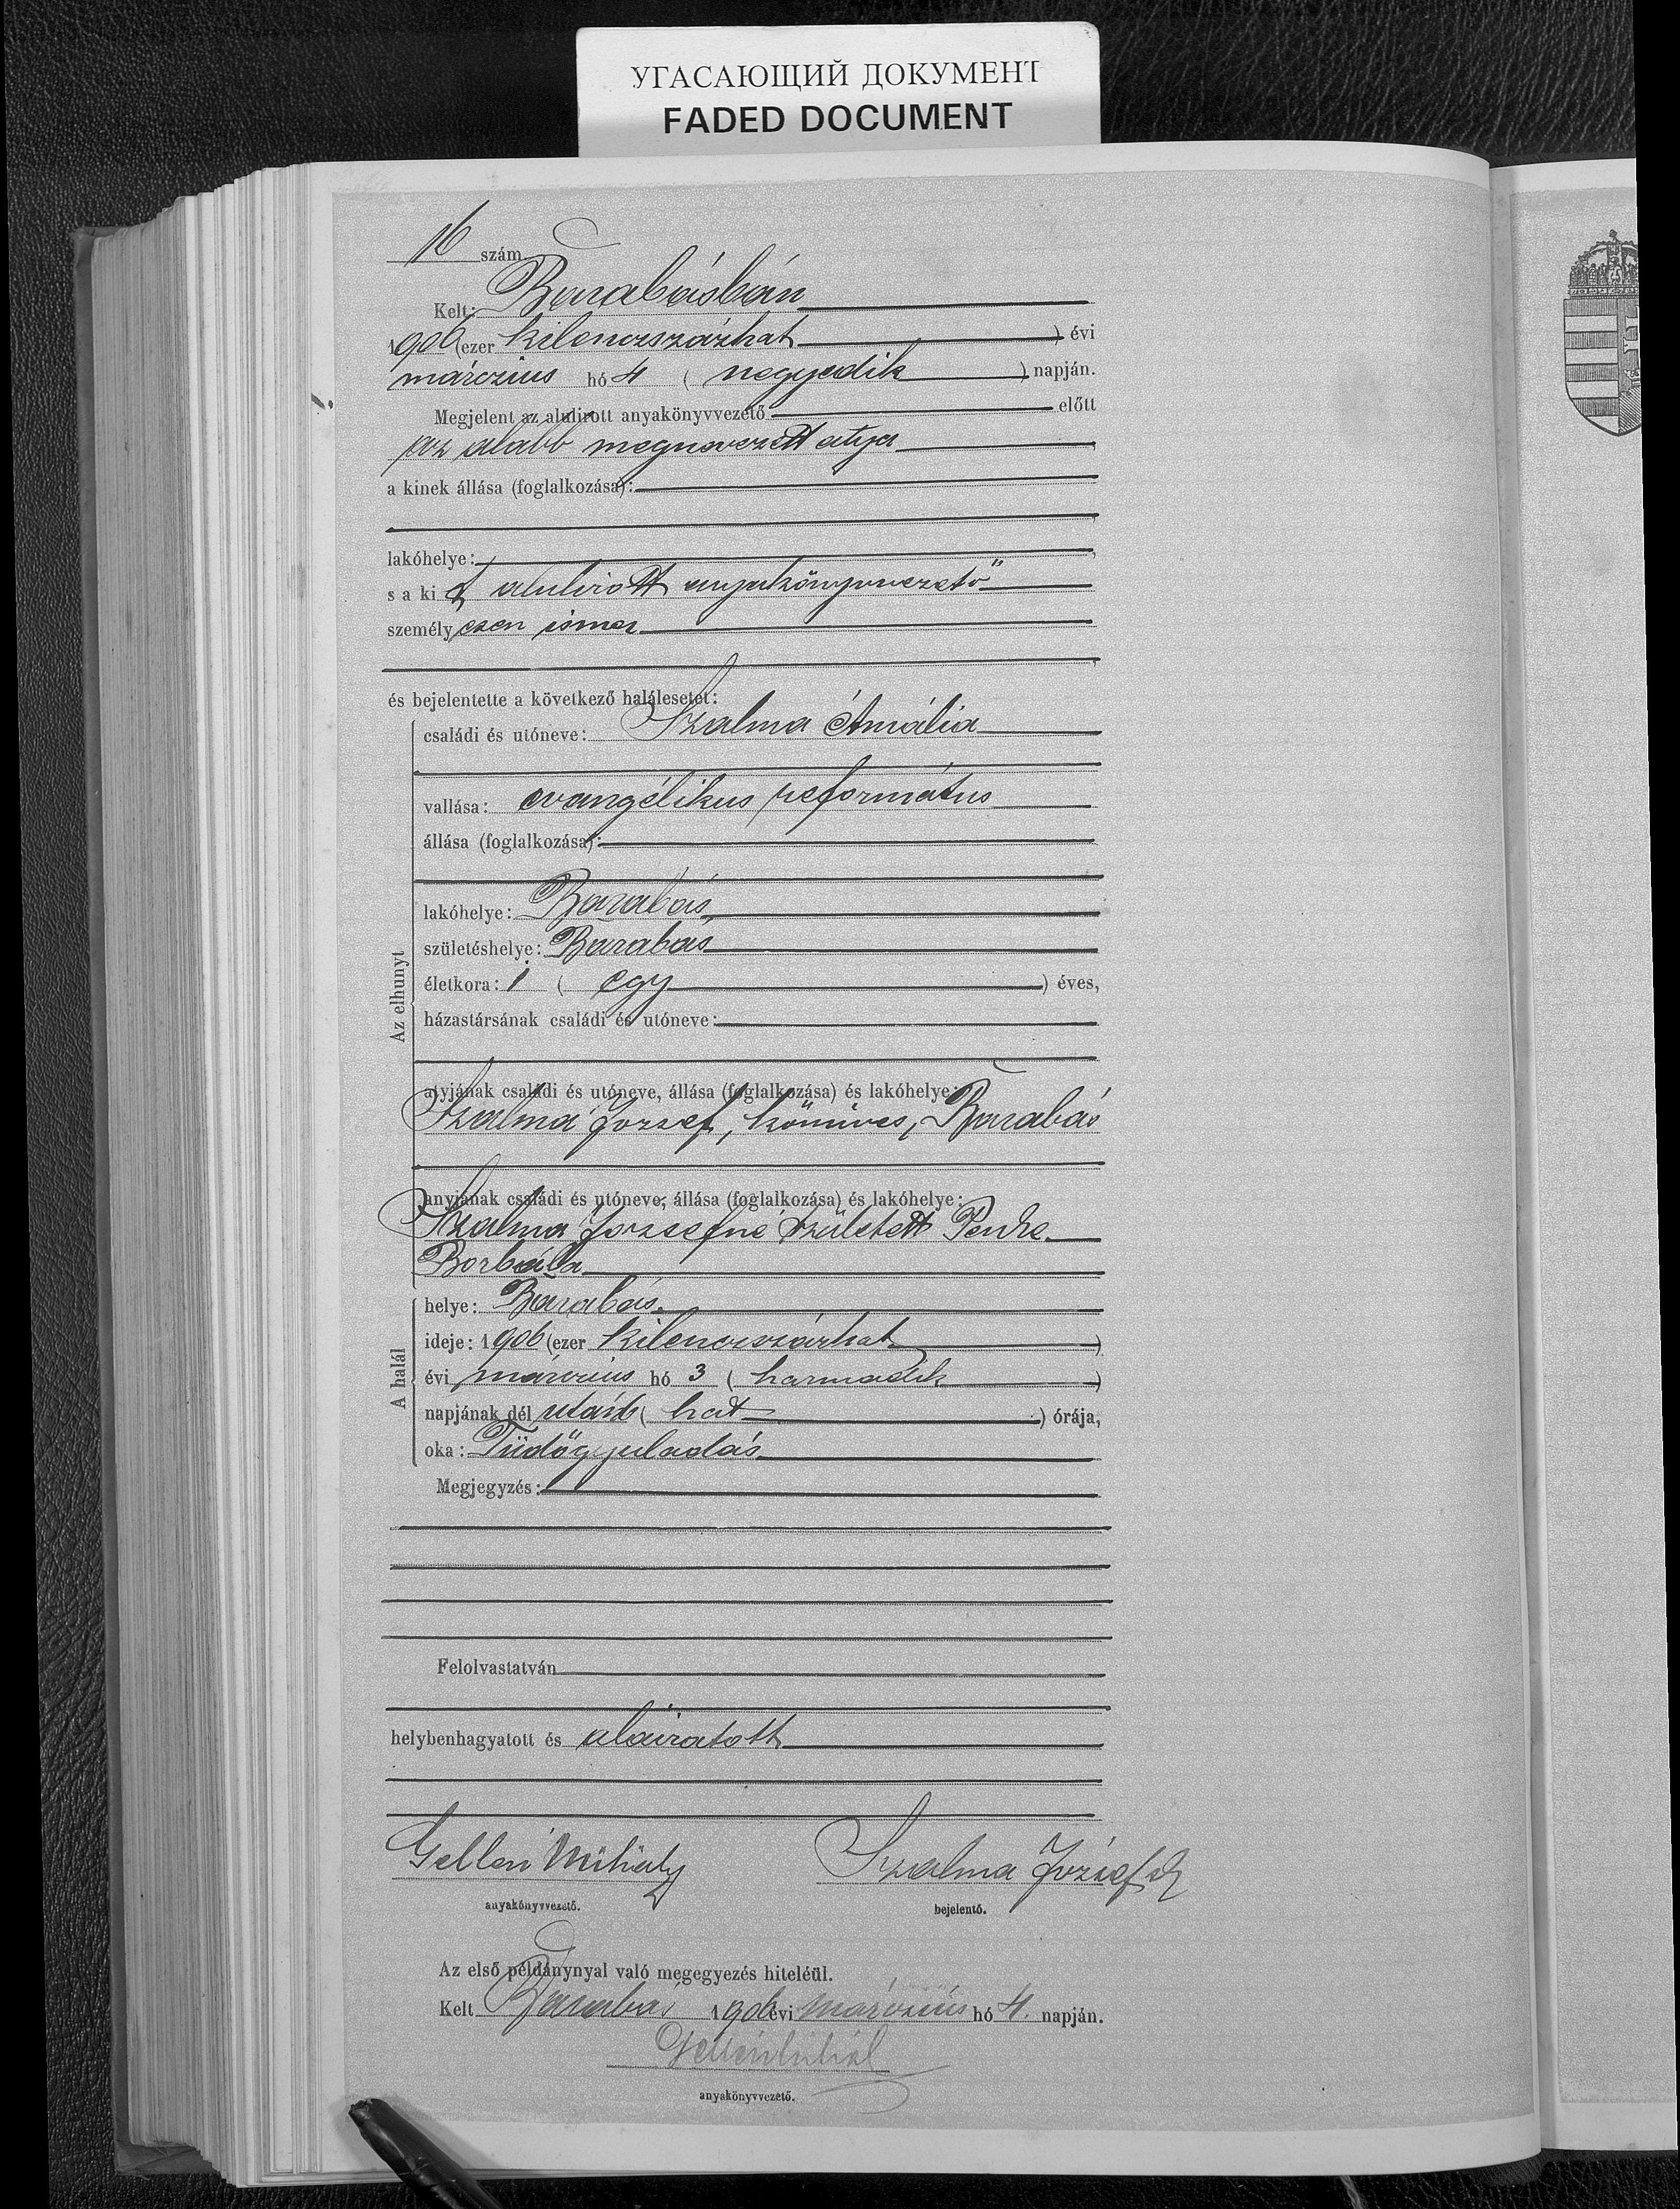 УГАСАЮЩИЙ ДОКУМЕНТ
FADED DOCUMENT
16 szám
Kelt: Barabásban
1906 (ezer kilenczszázhat ) évi
márczius hó 4 ( negyedik ) napján.
Megjelent az alulirott anyakönyvvezető előtt
az alább megnevezett atya
a kinek állása (foglalkozása):
lakóhelye:
s a kit alulirott anyakönyvvezető
személyesen ismer
és bejelentette a következő halálesetet:
családi és utóneve: Szalma Amália
vallása: evangélikus református
állása (foglalkozása):
Az elhunyt
lakóhelye: Barabás
születéshelye: Barabás
életkora: 1 ( egy ) éves,
házastársának családi és utóneve:
atyjának családi és utóneve, állása (foglalkozása) és lakóhelye:
Szalma József, kőmives, Barabás
anyjának családi és utóneve, állása (foglalkozása) és lakóhelye:
Szalma Józsefné született
Borbála
A halál
helye: Barabás
ideje: 1906 (ezer kilenczszázhat )
évi márczius hó 3 ( harmadik )
napjának dél után 6 ( hat ) órája,
oka: Tüdőgyuladás
Megjegyzés:
Felolvastatván
helybenhagyatott és aláiratott
Gellén Mihály Szalma József
anyakönyvvezető. bejelentő.
Az első példánynyal való megegyezés hiteléül.
Kelt Barabás 1906 évi márczius hó 4. napján.
Gellén Mihál
anyakönyvvezető.